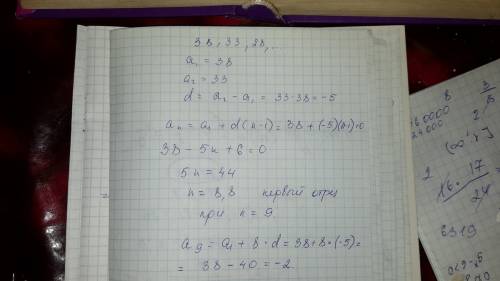 38, 33, 28, ...
a₁ = 38
a₂ = 33
d = a₂ - a₁ = 33-38 = -5
aₙ = a₁ + d(n-1) = 38 + (-5)(n-1) > 0
38 - 5n + 6 = 0
5n = 44
n = 8,8 первый отриц
при n = 9
a₉ = a₁ + 8·d = 38 + 8·(-5) =
= 38 - 40 = -2
16·17
24
6319